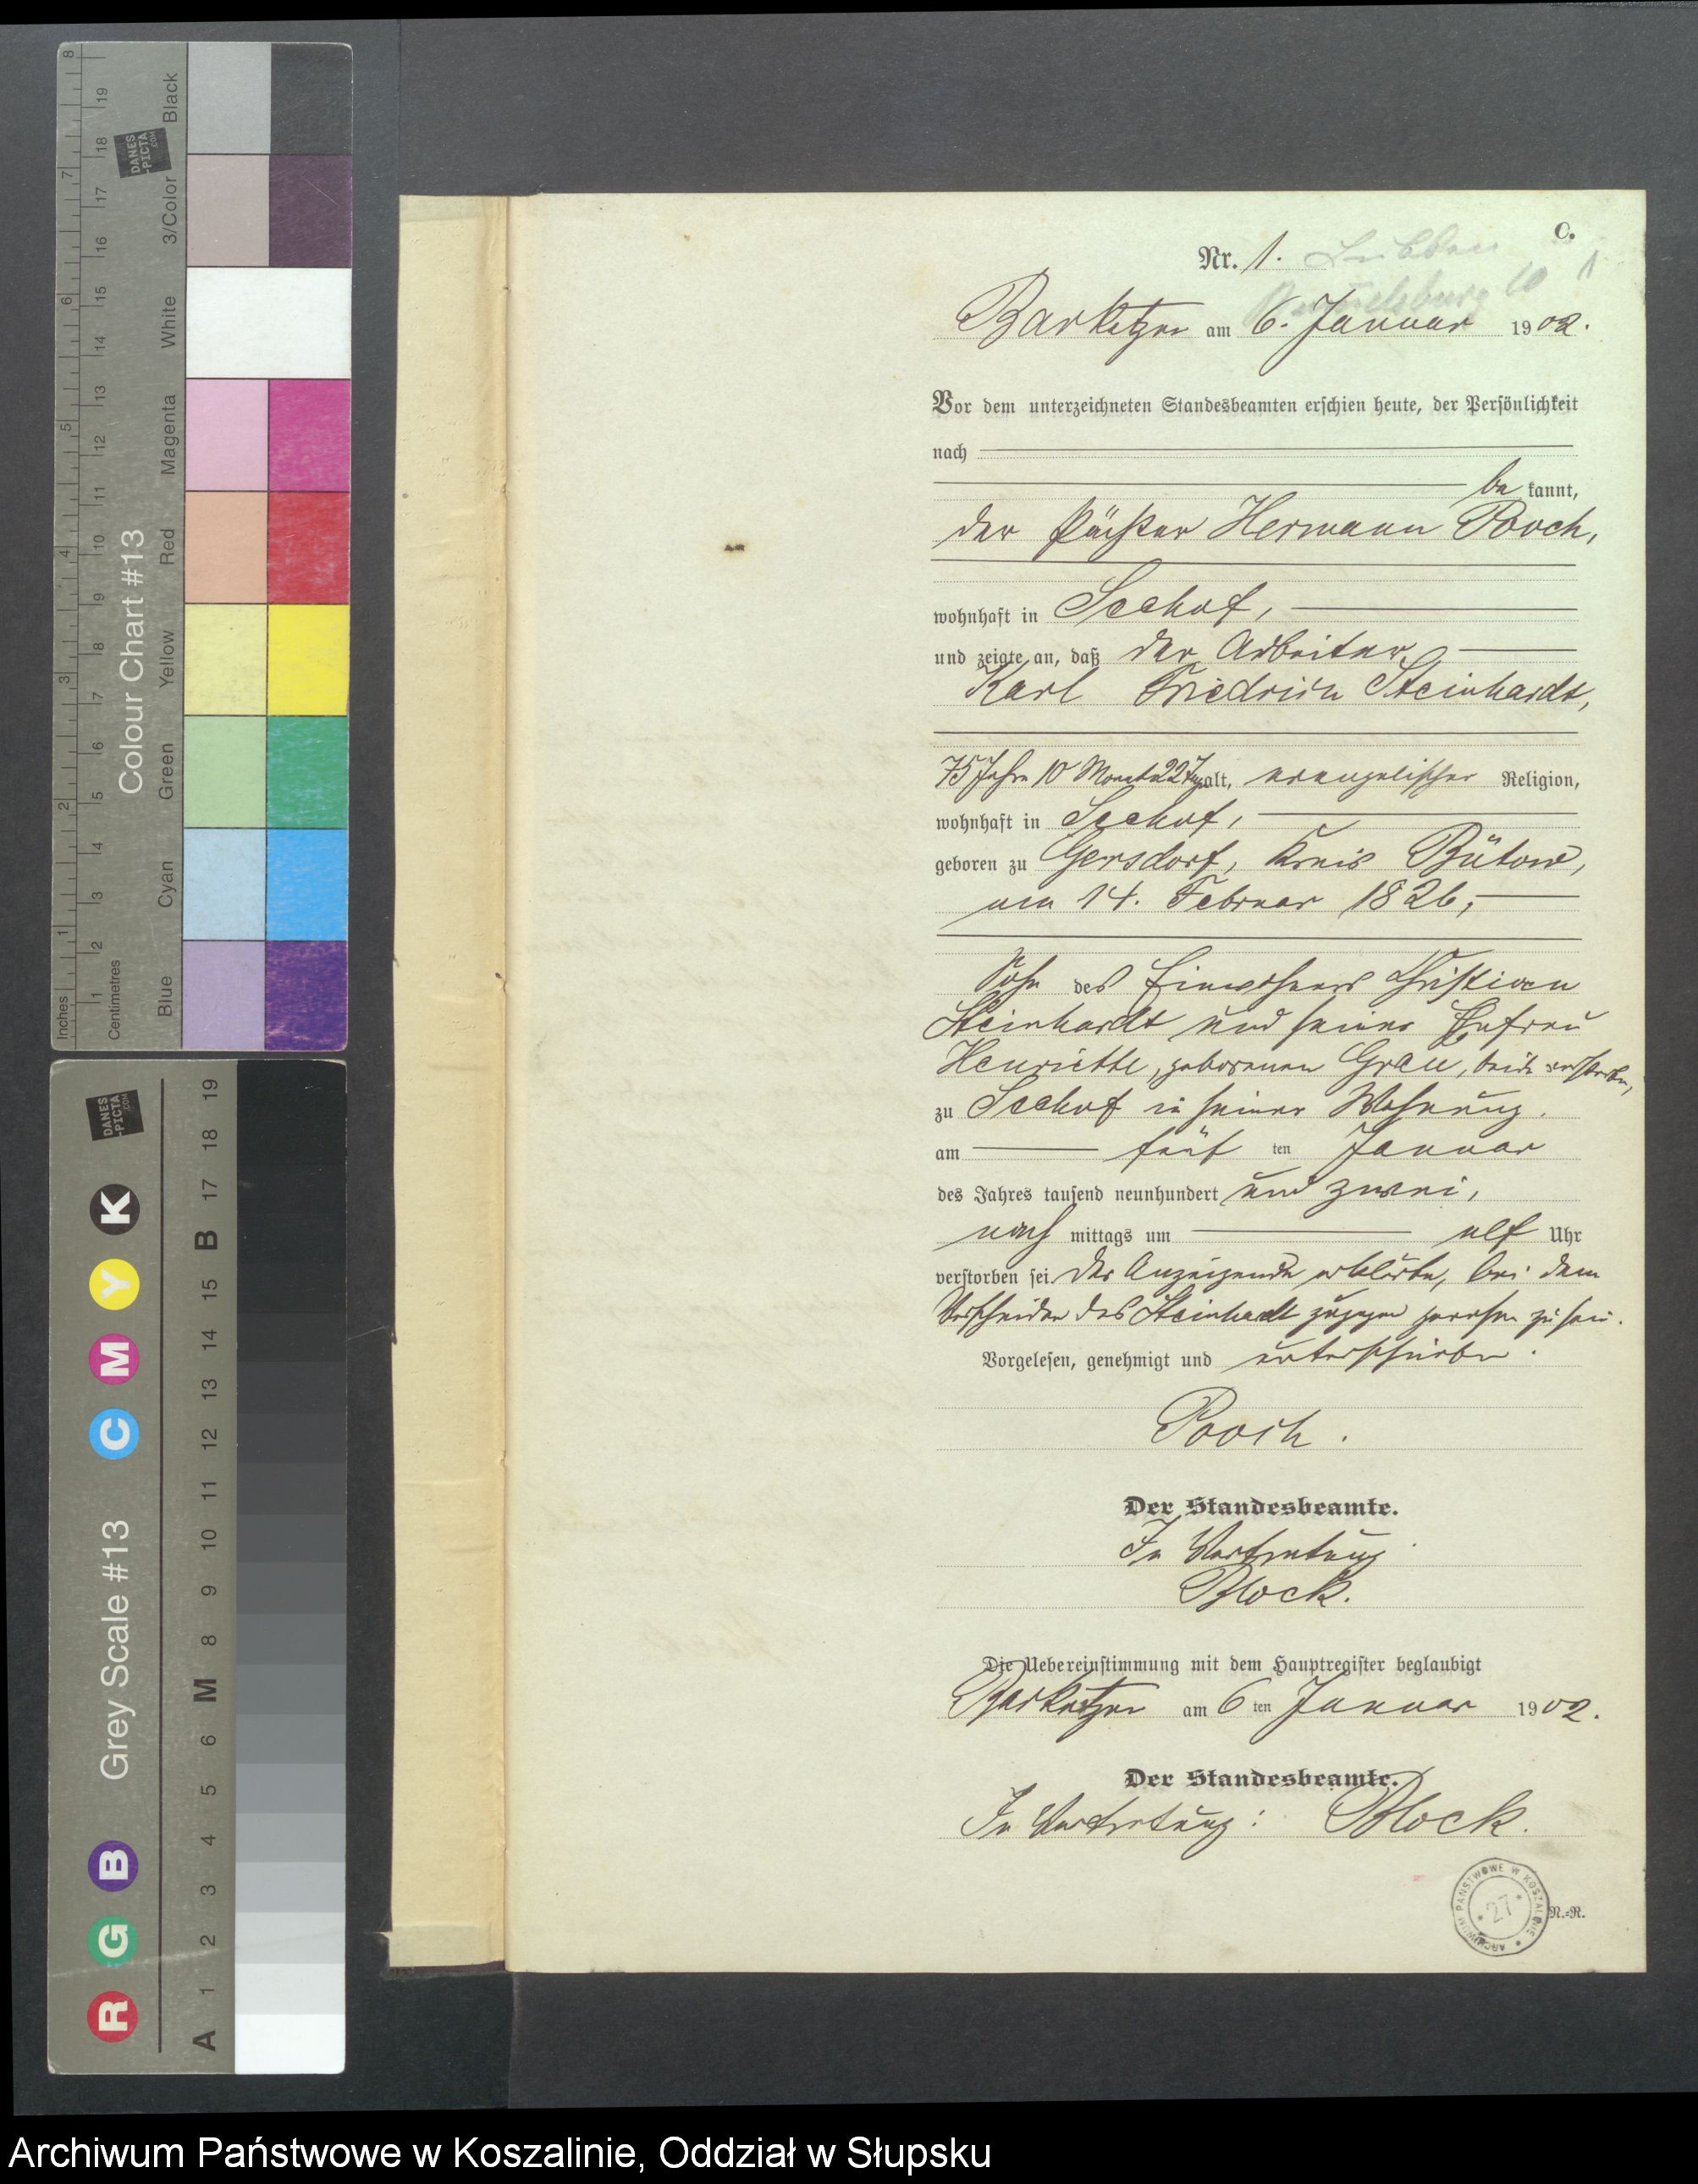 C.
Nr. 1.
1
Barkotzen am 6. Januar 1902.
Vor dem unterzeichneten Standesbeamten erschien heute, der Persönlichkeit
nach
be kannt,
der Pächter Hermann Pooch,
wohnhaft in Seehof,
und zeigte an, daß der Arbeiter
Karl Friedrich Steinhardt,
75 Jahre 10 Monate 22 Tage alt, evangelischer Religion,
wohnhaft in Seehof,
geboren zu Gersdorf, Kreis Bütow,
am 14. Februar 1826,
Sohn des Einwohners Christian
Steinhardt und seiner Ehefrau
Henriette, geborenen Grau, beide verstorben,
zu Seehof in seiner Wohnung.
am fünf ten Januar
des Jahres tausend neunhundert und zwei,
nach mittags um elf Uhr
verstorben sei. Der Anzeigende erklärte, bei dem
Verscheiden des Steinhardt zugegen gewesen zu sein.
Vorgelesen, genehmigt und unterschrieben.
Pooch.
Der Standesbeamte.
In Vertretung
Block.
Die Uebereinstimmung mit dem Hauptregister beglaubigt
Barkotzen am 6 ten Januar 1902.
Der Standesbeamte.
In Vertretung: Block.
ARCHIWUM PAŃSTWOWE W KOSZALINIE
27
N.=R.
Inches 1 2 3 4 5 6 7 8
Centimetres 1 2 3 4 5 6 7 8 9 10 11 12 13 14 15 16 17 18 19
Colour Chart #13
Blue Cyan Green Yellow Red Magenta White 3/Color Black
DANES
-PICTA
.COM
Grey Scale #13
R G B C M Y K
A 1 2 3 4 5 6 M 8 9 10 11 12 13 14 15 B 17 18 19
DANES
-PICTA
.COM
Archiwum Państwowe w Koszalinie, Oddział w Słupsku